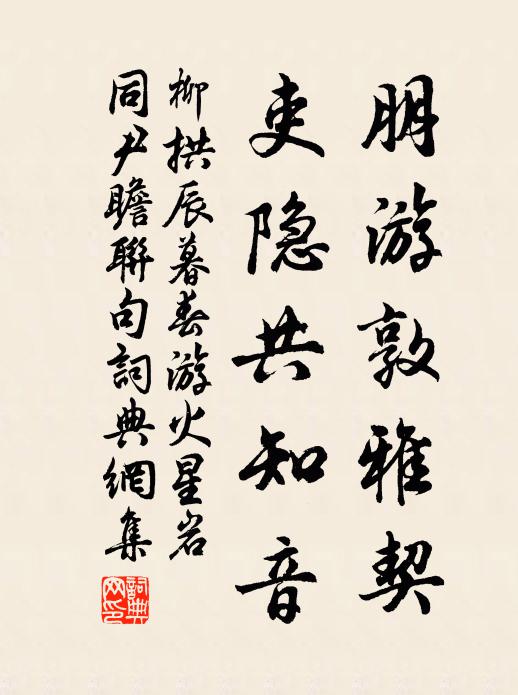 朋游敦雅契
吏隐共知音
柳拱辰暮春游火星岩
同尹瞻聯句詞典網集